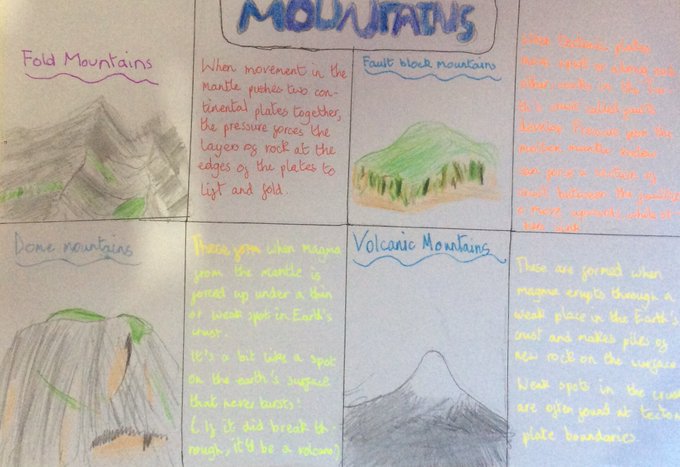 MOUNTAINS
Fold Mountains
When movement in the
mantle pushes two con-
tinental plates together,
the pressure forces the
layers of rock at the
edges of the plates to
lift and fold.
Fault block mountains
when tectonic plates
move apart or along
other cracks in the
crust called faults
develop. Pressure from the
molten mantle below
can force a section of
crust between the faults
to move upwards, while
sink
Dome mountains
These form when magma
from the mantle is
forced up under a thin
or weak spot in Earth's
crust.
It's a bit like a spot
on the earth's surface
that never bursts!
(If it did break th-
rough, it'd be a volcano!)
Volcanic Mountains
These are formed when
magma erupts through a
weak place in the Earth's
crust and makes piles of
new rock on the surface.
Weak spots in the crust
are often found at tectonic
plate boundaries.